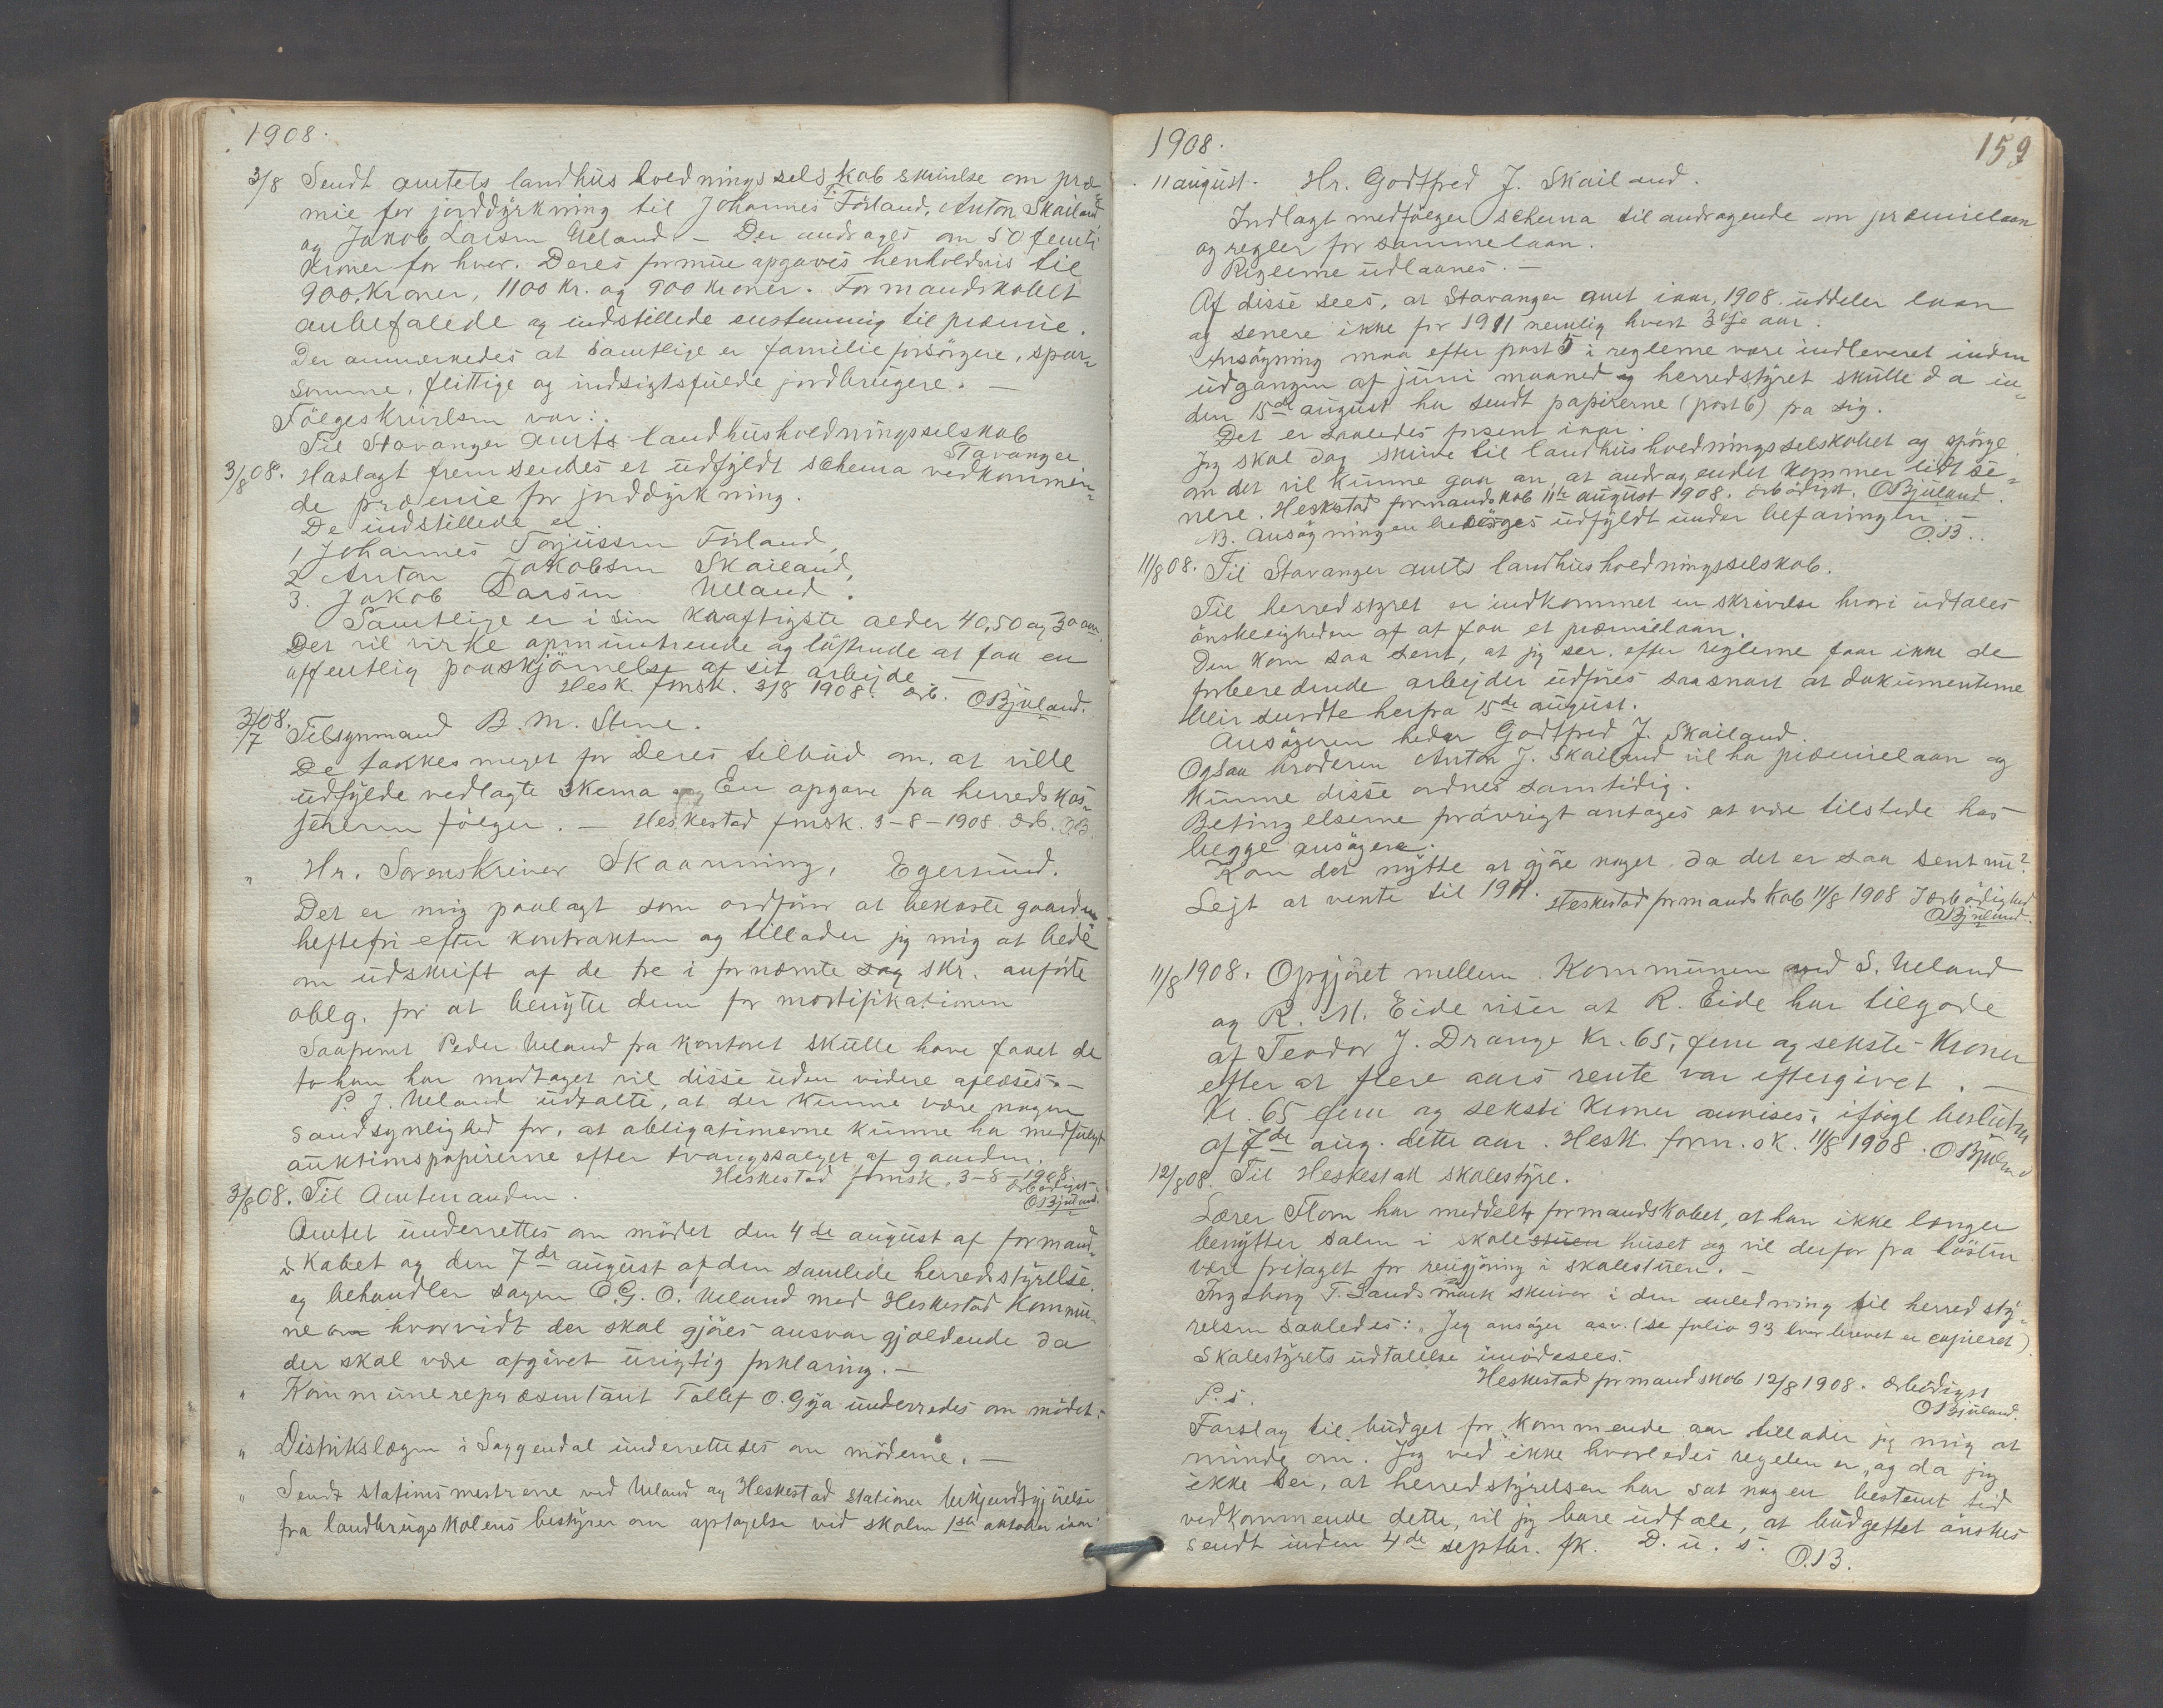 1908.
3/8 Sendt amtets landhusholdningsselskab skrivelse om præ-
mie for jorddyrkning til Johannes T. Förland, Anton Skailand
og Jakob Larsen Ueland. — Der andrages om 50 femti
kroner for hver. Deres formue opgaves henholdsvis til
900 Kroner, 1100 kr. og 900 kroner. Formandskabet
anbefalede og indstillede enstemmig til præmie.
Der anmærkedes at samtlige er familieforsörgere, spar-
somme, flittige og indsigtsfulde jordbrugere. —
Fölgeskrivelsen var:
Til Stavanger amts landhusholdningsselskab
Stavanger
3/8 08. Haslagt fremsendes et udfyldt schema vedkommen-
de præmie for jorddyrkning.
De indstillede er
1, Johannes Torjussen Förland,
2 Anton Jakobsen Skailand,
3. Jakob Larsen Ueland.
Samtlige er i sin kraftigste alder 40, 50 og 30 aar.
Det vil virke opmuntrende og löftende at faa en
offentlig paaskjönnelse af sit arbejde —
Hesk. fmsk. 3/8 1908. ærb. OBjuland.
3/7 08. Tilsynmand B. M. Stene.
De takkes meget for Deres tilbud om at ville
udfylde vedlagte skema En opgave fra herredskas-
sereren fölger. — Heskestad fmsk. 3-8-1908 ærb. O.B.
" Hr. Sorenskriver Skaanning, Egersund.
Det er mig paalagt som ordförer at bekoste gaarden
heftefri efter kontrakten og tillader jeg mig at bede
om udskrift af de tre i fornævnte sag skr. anförte
oblg. for at benytte dem for mortifikationen
Saafremt Peder Ueland fra kontoret skulle have faaet de
to han har modtaget vil disse uden videre aflæses. —
P. J. Ueland udtalte, at der kunne være nogen
sandsynlighed for, at obligationerne kunne ha medfulgt
auktionspapirerne efter tvangssalget af gaarden.
Heskestad fmsk. 3-8-1908
ærbödigst
OBjuland.
3/8 08. Til Amtmanden.
Amtet underrettes om mödet den 4de august af formand-
skabet og den 7de august af den samlede herredsstyrelse
og behandler sagen O. G. O. Ueland mod Heskestad Kommu-
ne om hvorvidt der skal gjöres ansvar gjældende da
der skal være afgivet urigtig forklaring. —
" Kommunerepræsentant Tollef O. Gya underredes om mödet.
" Distrikslægen i Soggendal underrettedes om möderne. —
" Sendt stationsmestrene ved Ueland og Heskestad stationer bekjendtgjörelse
fra landbrugskolens bestyrer om optagelse ved skolen 1ste oktober iaar
1908. 159
11 august. Hr. Godtfred J. Skailand.
Indlagt medfölger schema til andragende om præmielaan
og regler for sammelaan.
Reglerne udlaanes. —
Af disse sees, at Stavanger amt iaar, 1908 uddeler laan
og senere ikke för 1911 nemlig hvert 3dje aar.
Ansögning maa efter post 5 i reglerne være indleveret inden
udgangen af juni maaned og herredstyret skulle da in-
den 15de august ha sendt papirerne (post 6) fra sig.
Det er saaledes forsent iaar.
Jeg skal dog skrive til landhusholdningsselskabet og spörge
om det vil kunne gaa an, at andragendet kommer lidt se-
nere. Heskestad formandskab 11te august 1908. ærbödigst. OBjuland.
NB. Ansögningen besörges udfyldt under befaringen. —
O.B..
11/8 08. Til Stavanger amts landhusholdningsselskab.
Til herredstyret er indkommet en skrivelse hvori udtales
önskeligheden af at faa et præmielaan.
Den kom saa sent, at jeg ser, efter reglerne faar ikke de
forberedende arbejder udföres saasnart at dokumenterne
bleir sendte herfra 15de august.
Ansögeren heder Godtfred J. Skailand.
Ogsaa broderen Anton J. Skailand vil ha præmielaan og
kunne disse ordnes samtidig.
Betingelserne forövrigt antages at være tilstede hos
begge ansögere.
Kan det nytte at gjöre noget da det er saa sent nu?
Lejt at vente til 1911. Heskestad formandskab 11/8 1908 I ærbödighed
OBjuland.
11/8 1908. Opgjöret mellem Kommunen ved S. Ueland
og R. M. Eide viser at R. Eide har tilgode
af Teodor J. Drange Kr. 65, fem og sekste Kroner
efter at flere aars rente var eftergivet. —
Kr. 65 fem og seksti kroner anvises, ifölge beslutn
af 7de aug. dette aar. Hesk. form. sk. 11/8 1908. OBjuland
12/8 08. Til Heskestad skolestyre.
Lærer Flom har meddelt formandskabet, at han ikke længer
benytter salen i skolestuen huset og vil derfor fra hösten
være fritaget for rengjöring i skolestuen. —
Ingeborg T. Sandsmark skriver i den anledning til herredsty-
relsen saaledes: „Jeg ansöger osv. (se folio 93 hvor brevet er copieret).
Skolestyrets udtalelse imödesees.
Heskestad formandskab 12/8 1908. ærbödigst
OBjuland.
P. s.
Forslag til budget for kommende aar tillader jeg mig at
minde om. Jeg ved ikke hvorledes regelen er, og da jeg
ikke ser, at herredstyrelsen har sat nogen bestemt tid
vedkommende dette, vil jeg bare udtale, at budgettet önskes
sendt inden 4de septbr. fk. D. u. s.
O.B.